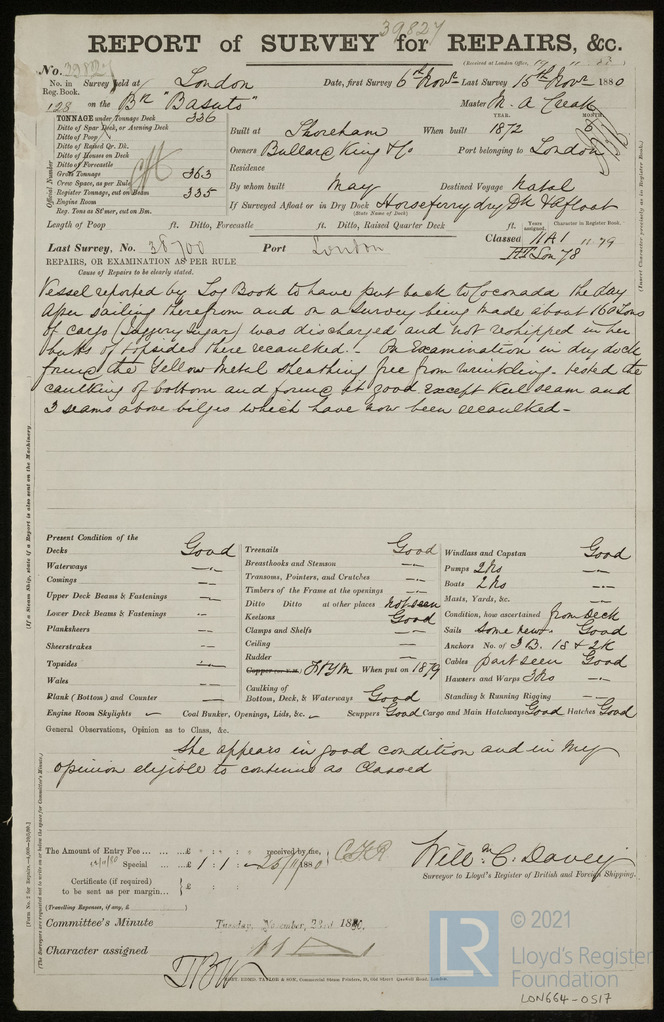 39827
REPORT of SURVEY for REPAIRS, &c.
(Received at London Office, 19 11 80)
No. 39827
No. in Reg. Book. Survey held at London Date, first Survey 6th Novr Last Survey 15th Novr 1880
128 on the Bn "Basuto" Master
TONNAGE under Tonnage Deck 336
Ditto of Spar Deck, or Awning Deck
Ditto of Poop
Ditto of Raised Qr. Dk.
Ditto of Houses on Deck
Ditto of Forecastle
Gross Tonnage 363
Crew Space, as per Rule
Register Tonnage, cut on Beam 335
Engine Room
Reg. Tons as St'mer, cut on Bm.
Official Number
YEAR. MONTH
Built at Shoreham When built 1872 5
Owners Bullard King & Co Port belonging to London
Residence
By whom built May Destined Voyage Natal
If Surveyed Afloat or in Dry Dock Horseferry dry Dk & Afloat
(State Name of Dock)
Length of Poop ft. Ditto, Forecastle ft. Ditto, Raised Quarter Deck ft.
Years assigned. Character in Register Book.
Last Survey, No. 38700 Port London Classed 11A1 11.79
REPAIRS, OR EXAMINATION AS PER RULE
Lon 78
Cause of Repairs to be clearly stated.
(Insert Character precisely as in Register Book.)
Vessel reported by Log Book to have put back to Coconada the day
after sailing therefrom and on a Survey being made about 160 Tons
of cargo (Jaggery Sugar) was discharged and not reshipped in her
butts of topsides there recaulked. – On Examination in dry dock
found the Yellow Metal sheathing free from wrinkling – tested the
caulking of bottom and found it good except keel seam and
3 seams above bilges which have now been recaulked –
(If a Steam Ship, state if a Report is also sent on the Machinery.
Present Condition of the
Decks Good
Waterways
Comings
Upper Deck Beams & Fastenings
Lower Deck Beams & Fastenings
Planksheers
Sheerstrakes
Topsides
Wales
Plank (Bottom) and Counter
Treenails Good
Breasthooks and Stemson
Transoms, Pointers, and Crutches
Timbers of the Frame at the openings
Ditto Ditto at other places not seen
Keelsons Good
Clamps and Shelfs
Ceiling
Rudder
Copper (or Y.M.) F&YM When put on 1879
Caulking of Bottom, Deck, & Waterways Good
Windlass and Capstan Good
Pumps 2 No
Boats 2 No
Masts, Yards, &c.
Condition, how ascertained from Deck
Sails some new Good
Anchors No. of 3 B. 1S & 2K
Cables part seen Good
Hawsers and Warps 3 No
Standing & Running Rigging
Engine Room Skylights – Coal Bunker, Openings, Lids, &c. – Scuppers Good Cargo and Main Hatchways Good Hatches Good
General Observations, Opinion as to Class, &c.
She appears in good condition and in my
opinion eligible to continue as Classed
The Amount of Entry Fee ... £ : : received by me,
Special ... £ 1 : 1 : – 25/11/1880
Certificate (if required) to be sent as per margin... £ :
(Travelling Expenses, if any, £
Willm. C. Davey
Surveyor to Lloyd's Register of British and Foreign Shipping.
Committee's Minute Tuesday, November, 23rd 1880.
Character assigned 11 A
(The Surveyors are requested not to write on or below the space for Committee's Minute.)
© 2021
LR
Lloyd's Register
Foundation
LON664-0517